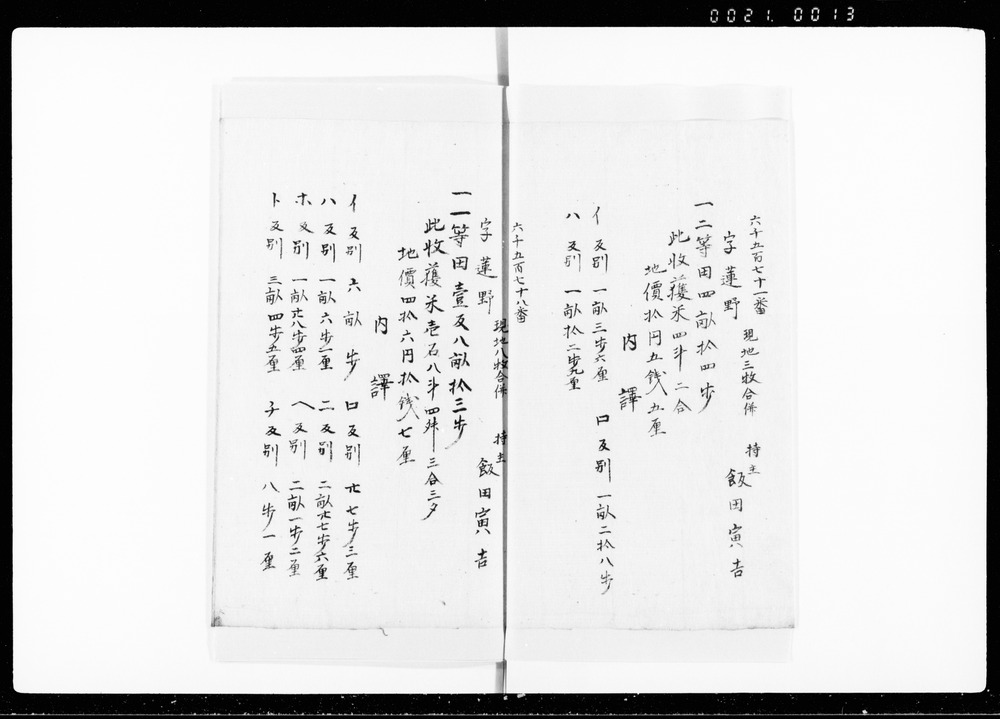 0021.0013
六千五百七十一番
字蓮野 現地三牧合併 持主 飯田寅吉
一二等田四畝拾四歩
此收獲米四斗二合
地價拾円五銭五厘
内譯
イ反別 一畝三歩六厘 ロ反別 一畝二拾八歩
ハ反別 一畝拾二歩九厘
六千五百七十八番
字蓮野 現地八牧合併 持主 飯田寅吉
一一等田壹反八畝拾三歩
此收獲米壱石八斗四舛三合三夕
地價四拾六円拾銭七厘
内譯
イ反別 六畝歩 ロ反別 廿七歩三厘
ハ反別 一畝六歩一厘 二反別 二畝廿七歩六厘
ホ反別 一畝廿八歩四厘 ヘ反別 二畝一歩二厘
ト反別 三畝四歩五厘 チ反別 八歩一厘